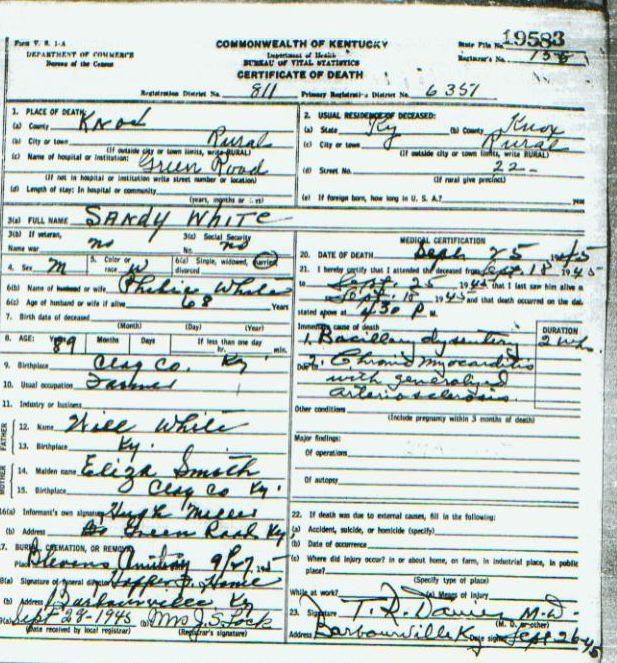 Form V. S. 1-A
DEPARTMENT OF COMMERCE
Bureau of the Census
COMMONWEALTH OF KENTUCKY
Department of Health
BUREAU OF VITAL STATISTICS
CERTIFICATE OF DEATH
State File No. 19583
Registrar's No.
Registration District No. 811 Primary Registration District No. 6357
1. PLACE OF DEATH
(a) County Knox
(b) City or town Rural
(If outside city or town limits, write RURAL)
(c) Name of hospital or institution: Green Road
(If not in hospital or institution write street number or location)
(d) Length of stay: In hospital or community
(years, months or days)
2. USUAL RESIDENCE OF DECEASED:
(a) State Ky (b) County Knox
(c) City or town Rural
(If outside city or town limits, write RURAL)
(d) Street No. 22-
(If rural give precinct)
(e) If foreign born, how long in U. S. A.? year
3(a) FULL NAME SANDY WHITE
3(b) If veteran, Name war no 3(c) Social Security No. no
4. Sex M 5. Color or race W 6(a) Single, widowed, married, divorced
6(b) Name of husband or wife White
6(c) Age of husband or wife if alive 68 Years
7. Birth date of deceased
(Month) (Day) (Year)
8. AGE: Years 89 Months Days If less than one day hr. min.
9. Birthplace Clay Co. Ky
10. Usual occupation Farmer
11. Industry or business
FATHER
12. Name Will White
13. Birthplace Ky.
MOTHER
14. Maiden name Eliza Smith
15. Birthplace Clay Co Ky.
16(a) Informant's own signature Hugh Miller
(b) Address Green Road Ky
17. BURIAL, CREMATION, OR REMOVAL
Place 9/27 1945
18(a) Signature of funeral director Home
(b) Address Barbourville Ky
Sept 28-1945 (b) Mrs J. S. Lock
(Date received by local registrar) (Registrar's signature)
MEDICAL CERTIFICATION
20. DATE OF DEATH Sept 25 1945
21. I hereby certify that I attended the deceased from Sept. 18 1945
to Sept. 25 1945 that I last saw him alive on
Sept. 18 1945 and that death occurred on the date
stated above at 430 P M.
Immediate cause of death
DURATION
1. Bacillary dysentery 2 wks.
Due to 2. Chronic myocarditis
with generalized
arteriosclerosis.
Other conditions
(Include pregnancy within 3 months of death)
Major findings:
Of operations
Of autopsy
22. If death was due to external causes, fill in the following:
(a) Accident, suicide, or homicide (specify)
(b) Date of occurrence
(c) Where did injury occur? in or about home, on farm, in industrial place, in public place?
(Specify type of place)
While at work? (e) Means of injury
23. Signature T. R. Davies M.D.
(M. D. or other)
Address Barbourville Ky Date signed Sept 26-45